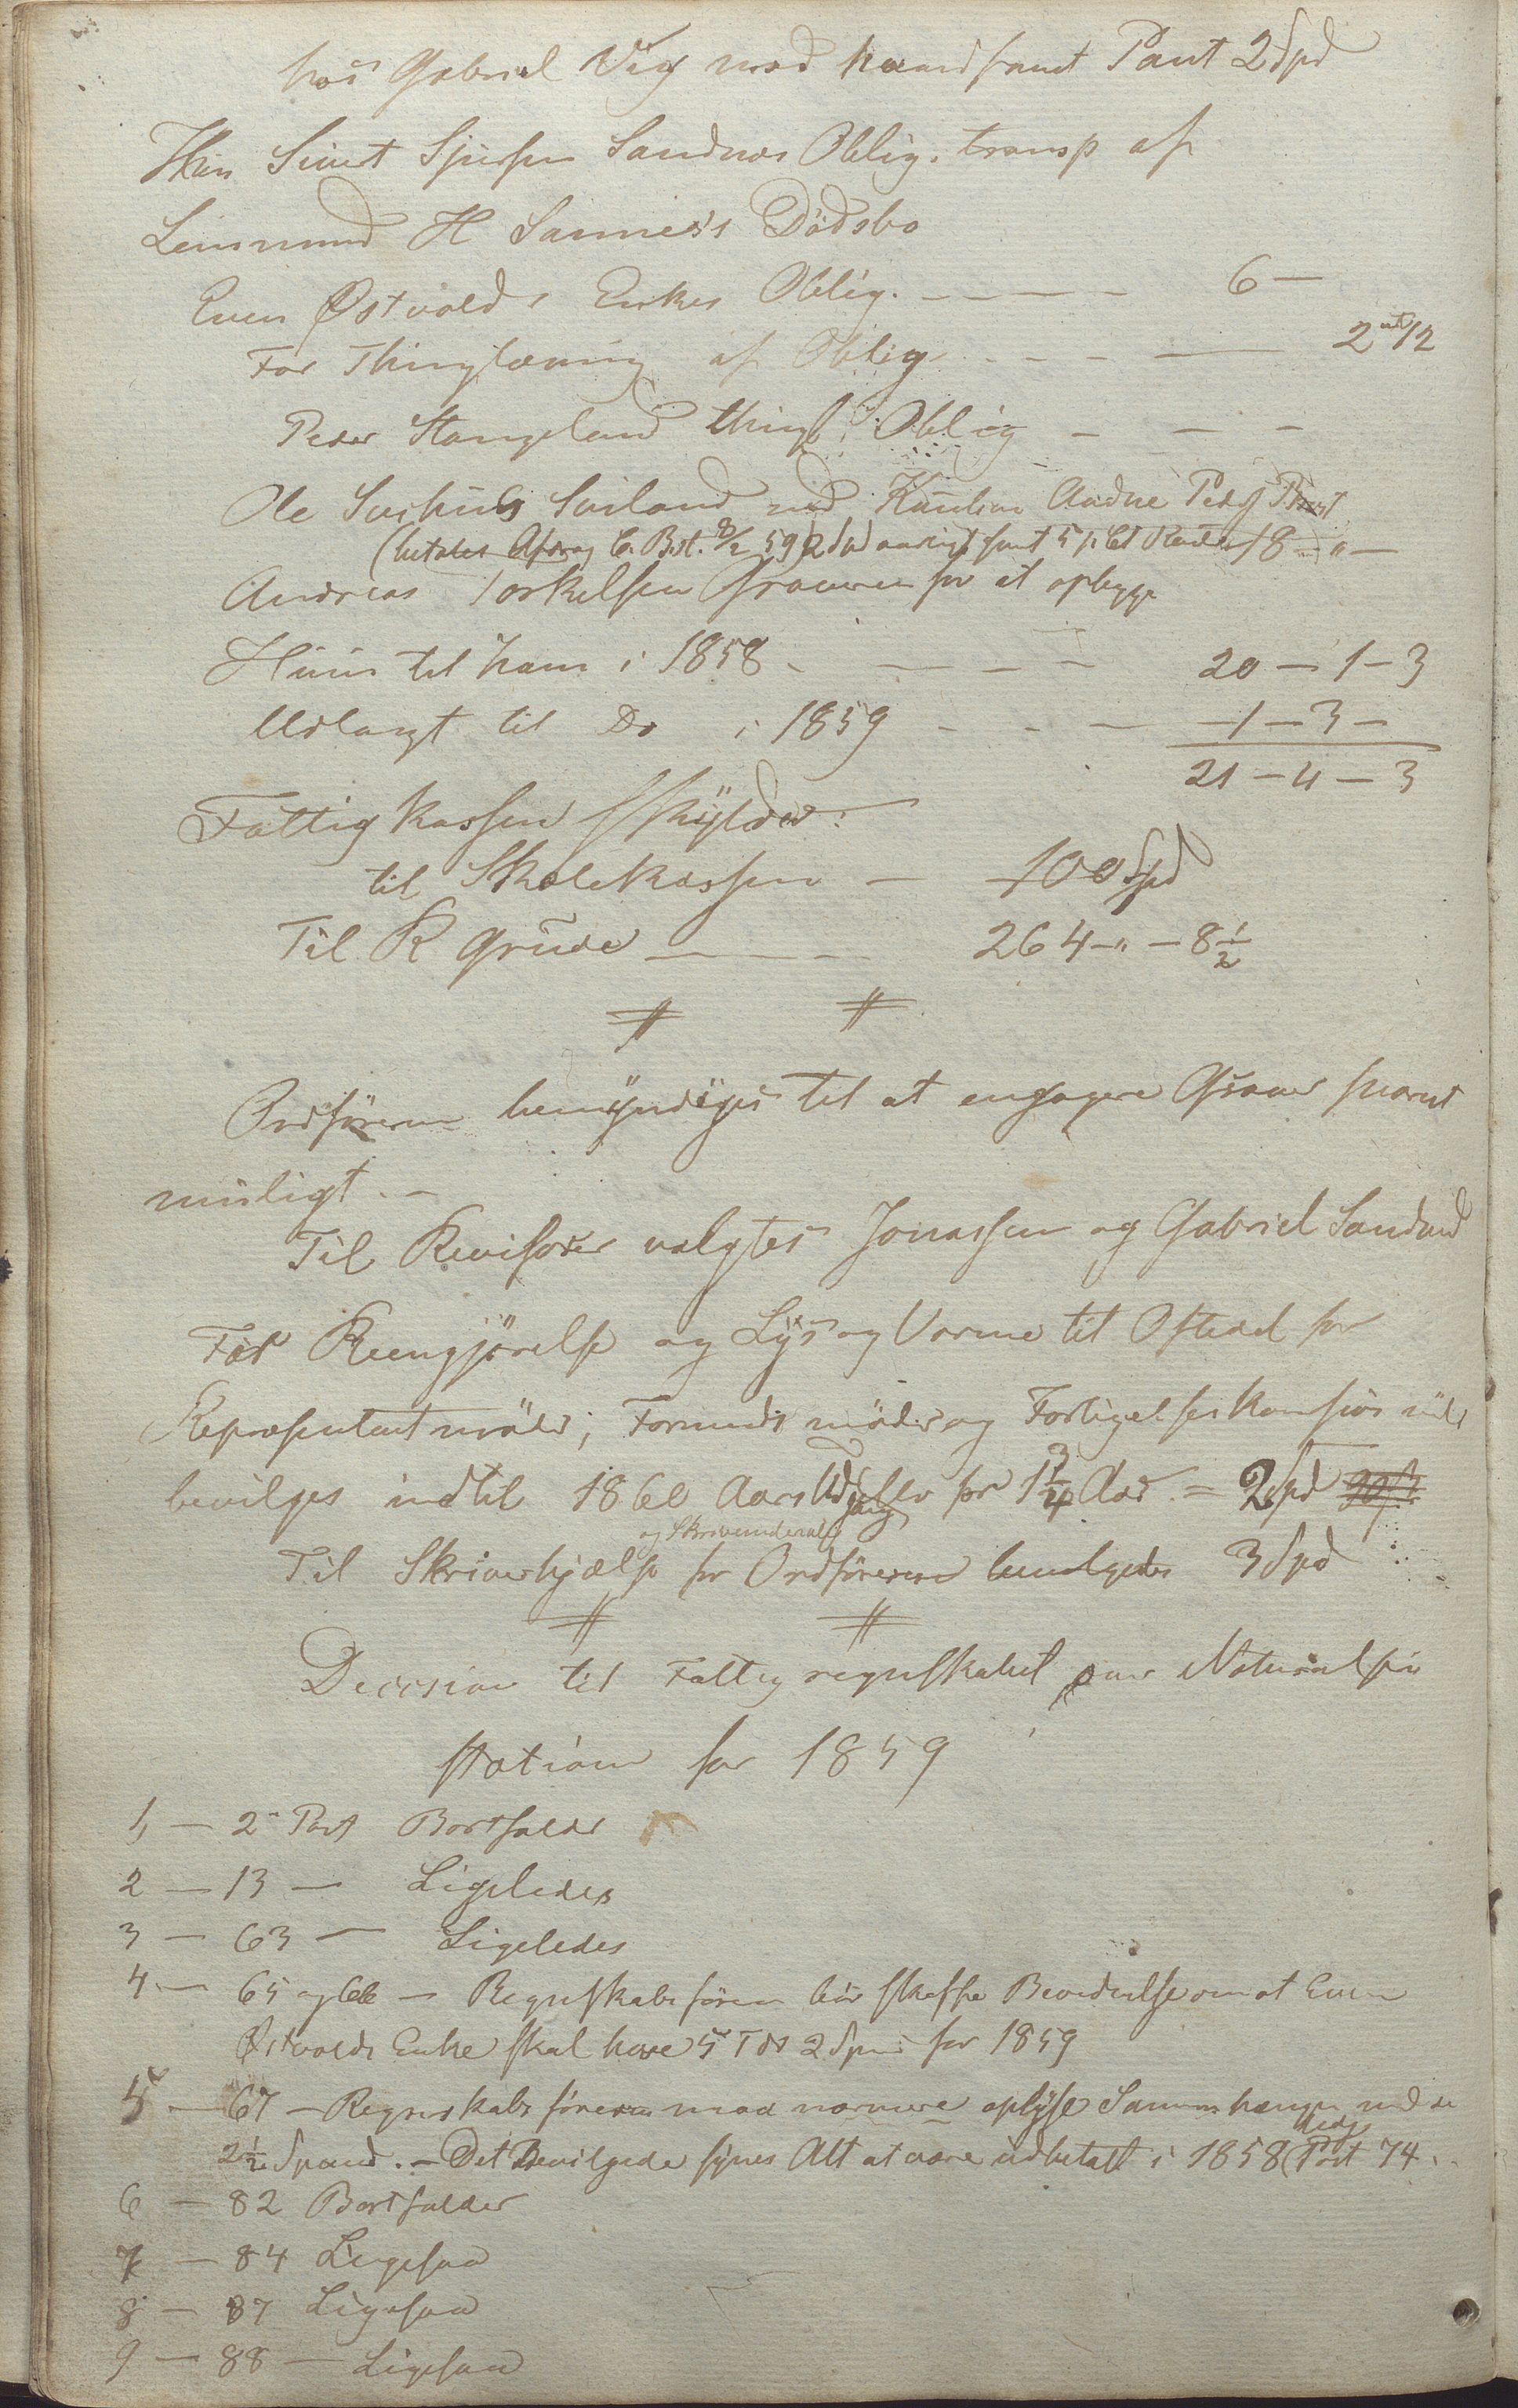 hos Gabriel Vig mod haandfaaet Pant 2 Spd
Sivert Sjursen Sandnæs Oblig. transp af
Lensmand H Sannes's Dödsbo
Even Østvolds Enkes Oblig. - - - - 6 -
For Thinglæsning af Oblig - - - - 2 mk 12
Peder Stangeland thingl. Oblig - - -
Ole Sørland med Kaution Audne Peders
(betales Afdrag 59) 2 Spd aarligt samt 5 p Ct Renter 18 - " -
Andreas Torkelsen Graveren for at opbygge
Huus til ham i 1858 - - - - 20 - 1 - 3
Udlagt til Do i 1859 - - - - 1 - 3 -
21 - 4 - 3
Fattigkassen skylder:
til Skolekassen - 100 Spd
Til R Grude - - - 264 - " - 8 1/2
Ordföreren bemyndiges til at engagere Graver snarest
muligt. -
Til Revisorer valgtes Jonassen og Gabriel Sandved
For Reengjörelse og Lys og Varme til Oftedal for
Repræsentantmöder, Formands möder og Forligelseskommissions
bevilges indtil 1860 Aars Udgang for 1 3/4 Aar = 2 Spd
og Skrivematerialer
Til Skriverhjælp for Ordföreren bevilgedes 3 Spd
Decision til Fattigregnskabet over Naturalpræ
stationer for 1859
1, - 2 Post Bortfalder
2 - 13 - Ligeledes
3 - 63 - Ligeledes
4 - 65 og 66 - Regnskabsföreren bör skaffe Bevidnelse om at Even
Østvolds Enke skal have 5 Tdr 2 Spand for 1859
5 - 67 - Regnskabsföreren maa nærmere oplyse Sammenhængen med de
2 1/2 Spand. - Det Bevilgede synes Alt at være udbetalt i 1858 (Post 74.
6 - 82 Bortfalder
7 - 84 Ligesaa
8 - 87 Ligesaa
9 - 88 - Ligesaa